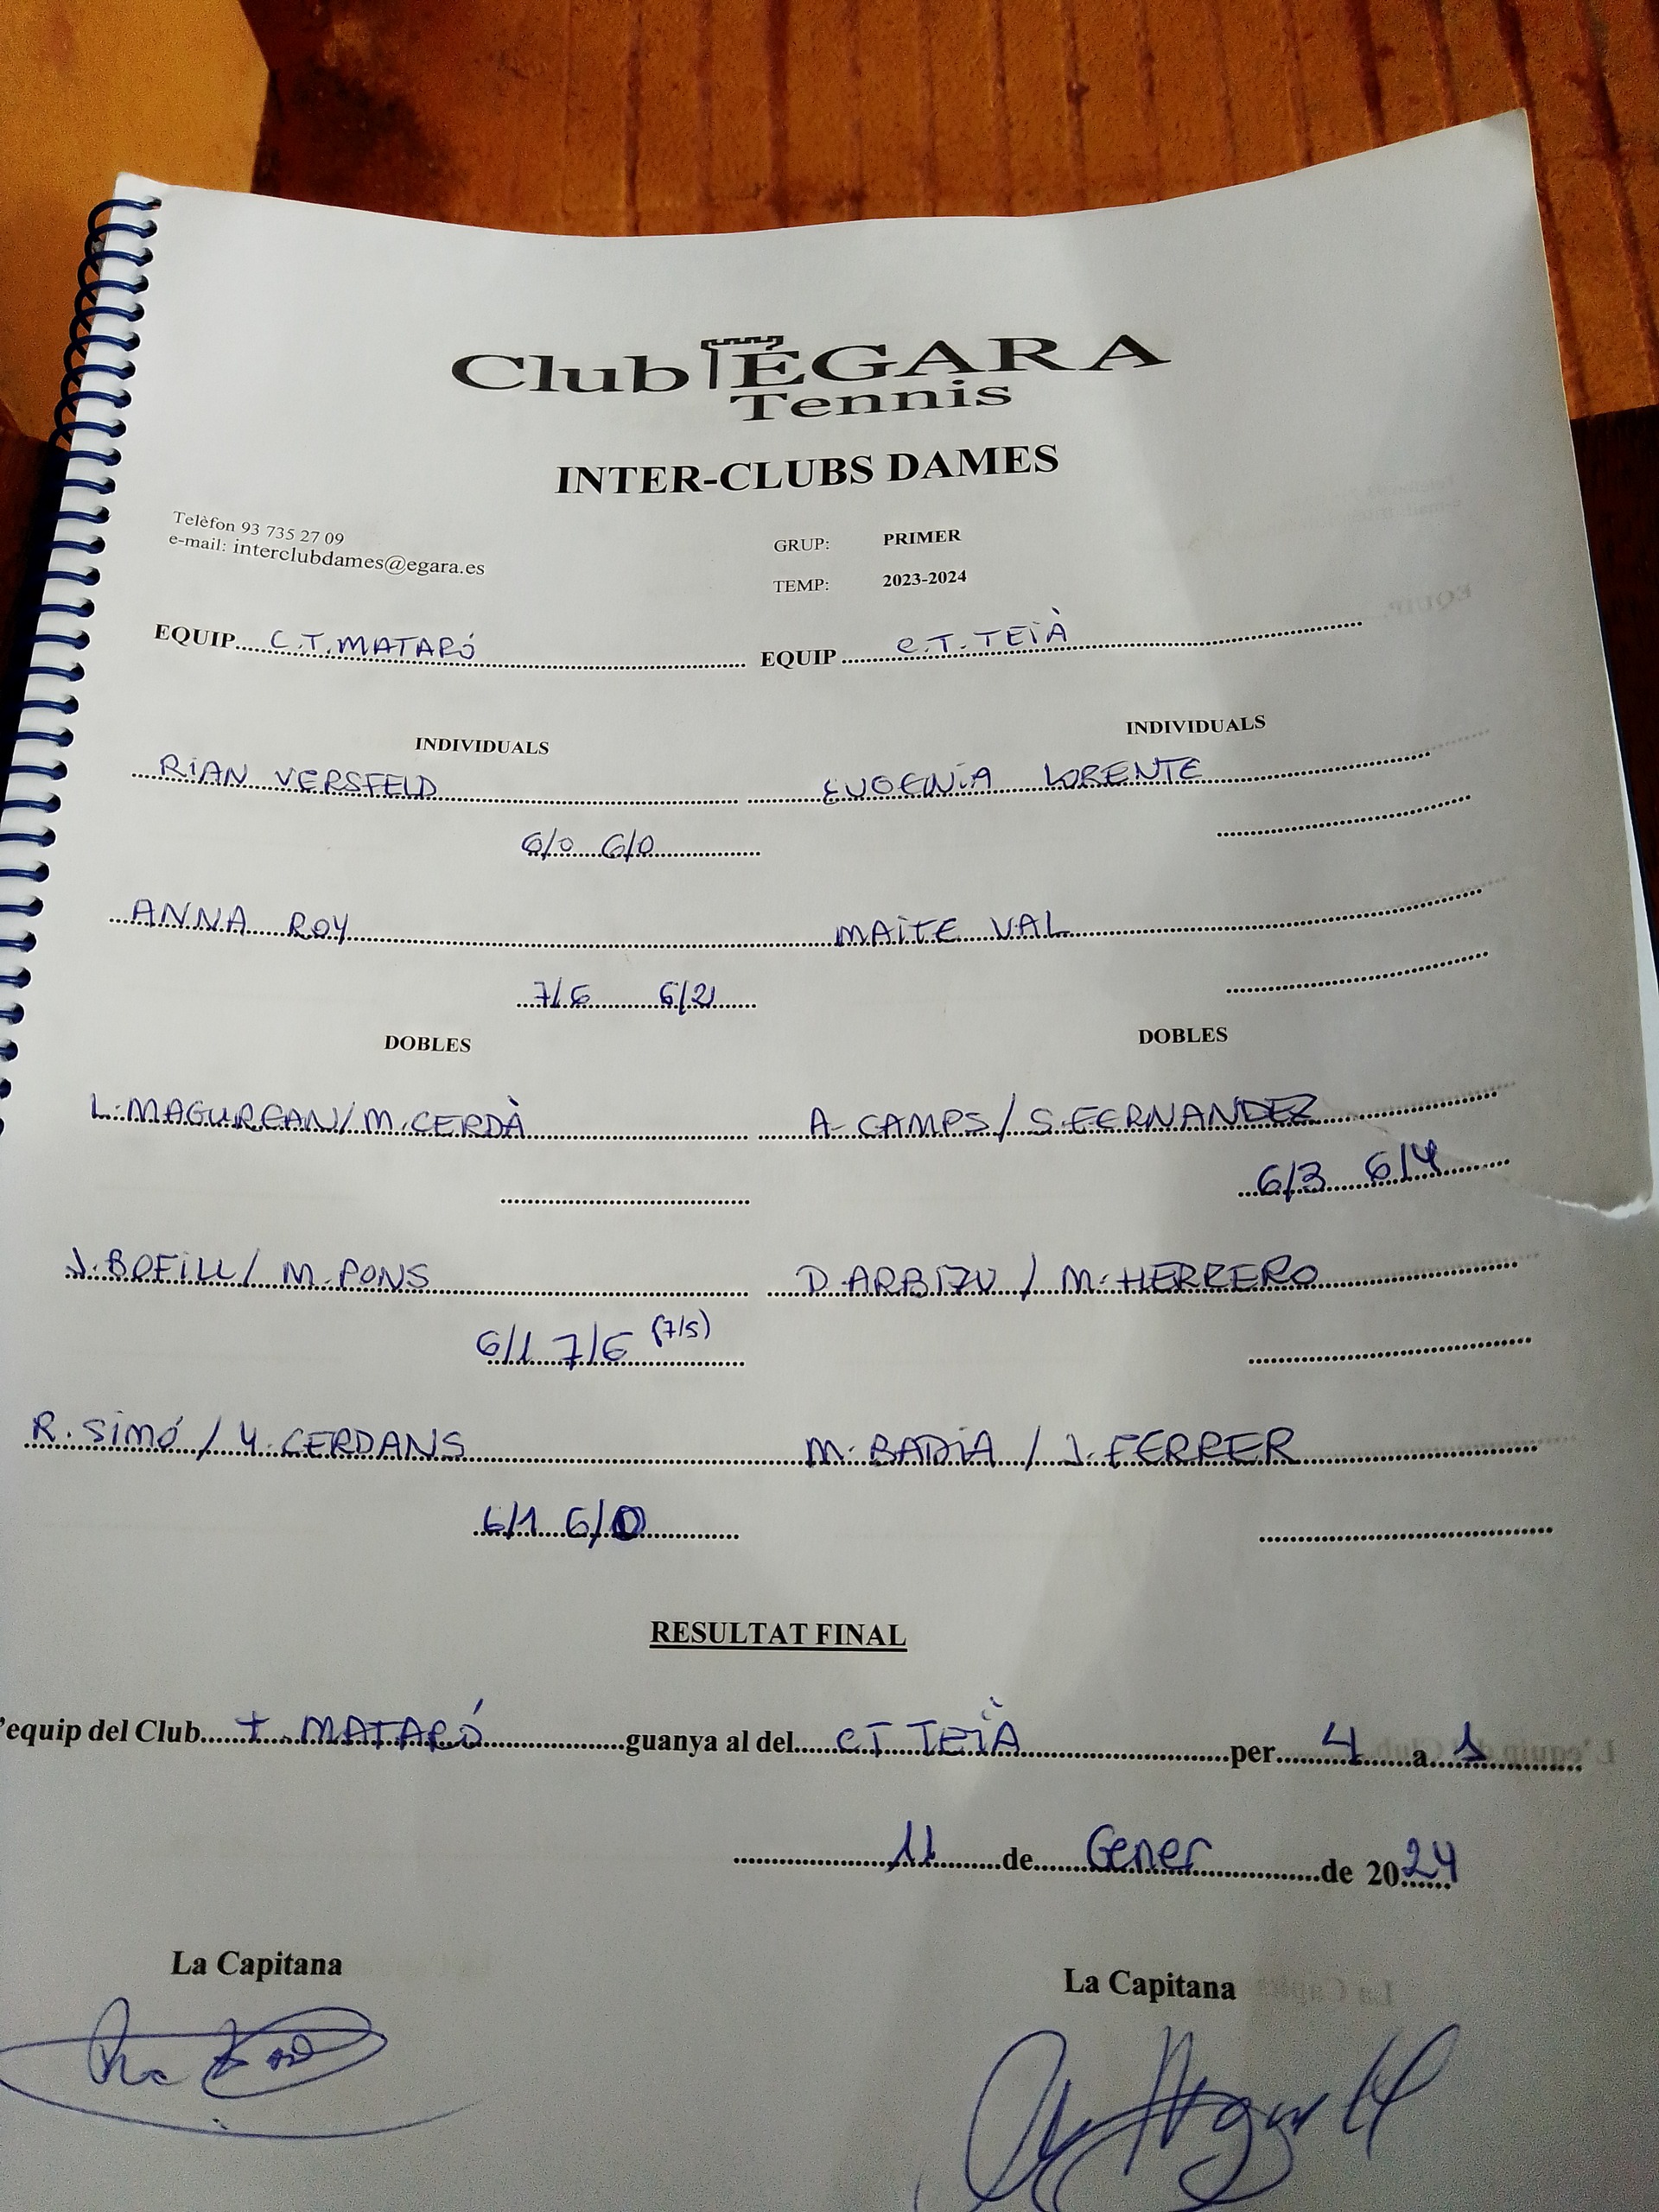 Club ÈGARA
Tennis
INTER-CLUBS DAMES
Telèfon 93 735 27 09
e-mail: interclubdames@egara.es
GRUP: PRIMER
TEMP: 2023-2024
EQUIP C.T. MATARÓ EQUIP C.T. TEIÀ
INDIVIDUALS INDIVIDUALS
RIAN VERSFELD EUGENIA LORENTE
6/0 6/0
ANNA ROY MAITE VAL
7/6 6/2
DOBLES DOBLES
L. MAGUREAN/M. CERDÀ A. CAMPS/S. FERNANDEZ
6/3 6/4
J. BOFILL/M. PONS D. ARBIZU/M. HERRERO
6/1 7/6 (7/5)
R. SIMÓ/Y. CERDANS M. BADIA/J. FERRER
6/1 6/0
RESULTAT FINAL
'equip del Club T. MATARÓ guanya al del CT TEIÀ per 4 a 1
11 de Gener de 2024
La Capitana La Capitana